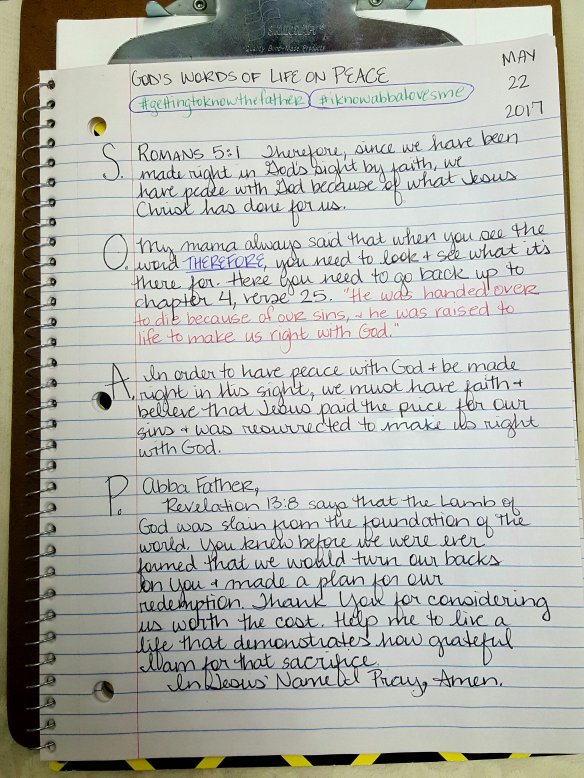 SKILCRAFT
Quality Blind-Made Products
GOD'S WORDS OF LIFE ON PEACE
MAY
22
2017
#gettingtoknowthefather #iknowabbalovesme
S. ROMANS 5:1 Therefore, since we have been
made right in God's sight by faith, we
have peace with God because of what Jesus
Christ has done for us.
O. My mama always said that when you see the
word THEREFORE, you need to look + see what it's
there for. Here you need to go back up to
chapter 4, verse 25. "He was handed over
to die because of our sins, + he was raised to
life to make us right with God."
A. In order to have peace with God + be made
right in His sight, we must have faith +
believe that Jesus paid the price for our
sins + was resurrected to make us right
with God.
P. Abba Father,
Revelation 13:8 says that the Lamb of
God was slain from the foundation of the
world. You knew before we were ever
formed that we would turn our backs
on You + made a plan for our
redemption. Thank You for considering
us worth the cost. Help me to live a
life that demonstrates how grateful
I am for that sacrifice.
In Jesus' Name I Pray, Amen.